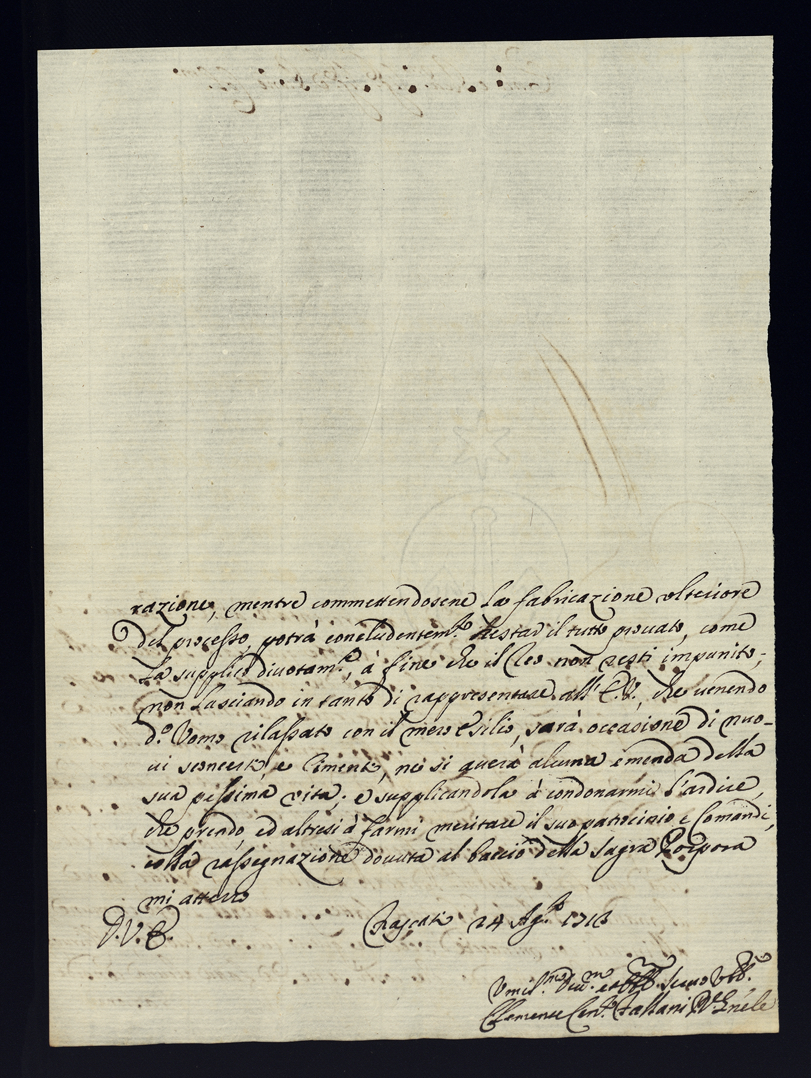 razione, mentre commettendosene la fabricazione ulteriore
del processo, potrà concludentem.te restar il tutto provato, come
la supplico divotam.te, à fine che il Reo non resti impunito;
non lasciando in tanto di rappresentare all' E.V., che venendo
d.o Uomo rilassato con il mero esilio, sarà occasione di nuo-
vi sconcerti, e cimenti, nè si averà alcuna emenda della
sua pessima vita; e supplicandola à condonarmi l'ardire,
che prendo, ed altresì à farmi meritare il suo patrocinio e comandi,
colla rassegnazione dovuta al baccio della Sagra Porpora
mi attesto
D.V.E.
Frascati 24 Ag.o 1713
Umil.mo Divm.o et Obb.mo Servo Obb.mo
Clemente